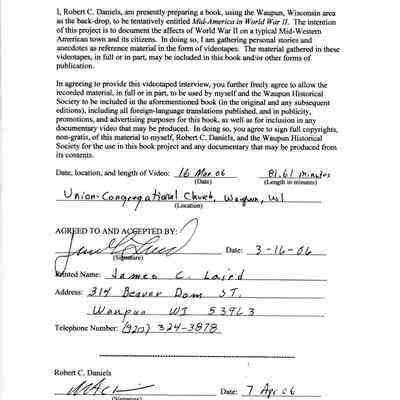 I, Robert C. Daniels, am presently preparing a book, using the Waupun, Wisconsin area
as the back-drop, to be tentatively entitled Mid-America in World War II. The intention
of this project is to document the affects of World War II on a typical Mid-Western
American town and its citizens. In doing so, I am gathering personal stories and
anecdotes as reference material in the form of videotapes. The material gathered in these
videotapes, in full or in part, may be included in this book and/or other forms of
publication.
In agreeing to provide this videotaped interview, you further freely agree to allow the
recorded material, in full or in part, to be used by myself and the Waupun Historical
Society to be included in the aforementioned book (in the original and any subsequent
editions), including all foreign-language translations published, and in publicity,
promotions, and advertising purposes for this book, as well as for inclusion in any
documentary video that may be produced. In doing so, you agree to sign full copyrights,
non-gratis, of this material to myself, Robert C. Daniels, and the Waupun Historical
Society for the use in this book project and any documentary that may be produced from
its contents.
Date, location, and length of Video: 16 Mar 06 81.61 minutes
(Date) (Length in minutes)
Union-Congregational Church, Waupun, WI
(Location)
AGREED TO AND ACCEPTED BY:
Date: 3-16-06
(Signature)
Printed Name: James C. Laird
Address: 314 Beaver Dam ST.
Waupun WI 53963
Telephone Number: (920) 324-3878
Robert C. Daniels
Date: 7 Apr 06
(Signature)